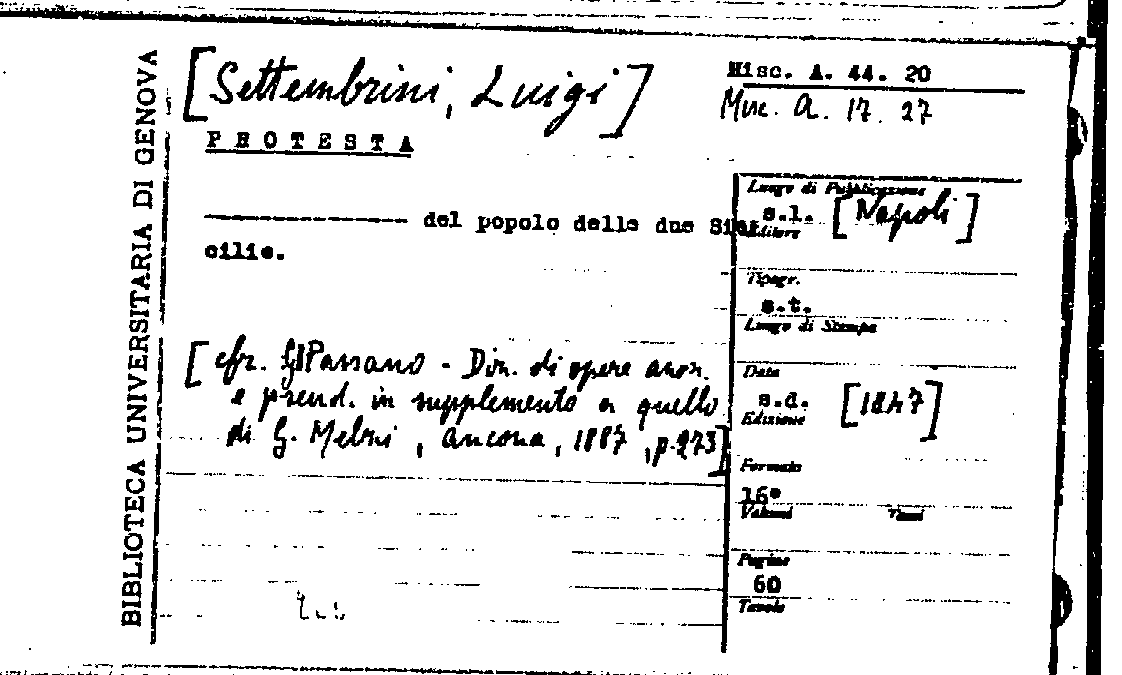 BIBLIOTECA UNIVERSITARIA DI GENOVA
[Settembrini, Luigi]
Misc. A. 44. 20
Misc. A. 17. 27
PROTESTA
-------------- del popolo delle due Si-
cilie.
[cfr. G Passano - Diz. di opere anon.
e pseud. in supplemento a quello
di G. Melzi, Ancona, 1887, p. 273]
Luogo di Pubblicazione
s.l. [Napoli]
Editore
Tipogr.
s.t.
Luogo di Stampa
Data
s.d. [1847]
Edizione
Formato
16°
Volumi Tomi
Pagine
60
Tavole